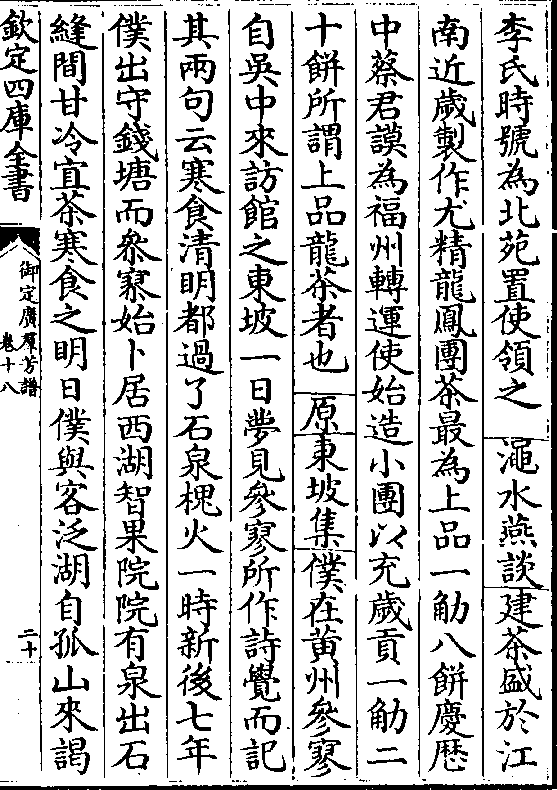 李氏時號為北苑置使領之　澠水燕談建茶盛於江
南近歲製作尤精龍鳳團茶最為上品一觔八餅慶歷
中蔡君謨為福州轉運使始造小團以充歲貢一觔二
十餅所謂上品龍茶者也　原東坡集僕在黄州參寥
自吳中來訪館之東坡一日夢見參寥所作詩覺而記
其兩句云寒食清明都過了石泉槐火一時新後七年
僕出守錢塘而參寥始卜居西湖智果院院有泉出石
縫間甘冷宜茶寒食之明日僕與客泛湖自孤山來謁
欽定四庫全書
御定廣羣芳譜
卷十八
二十